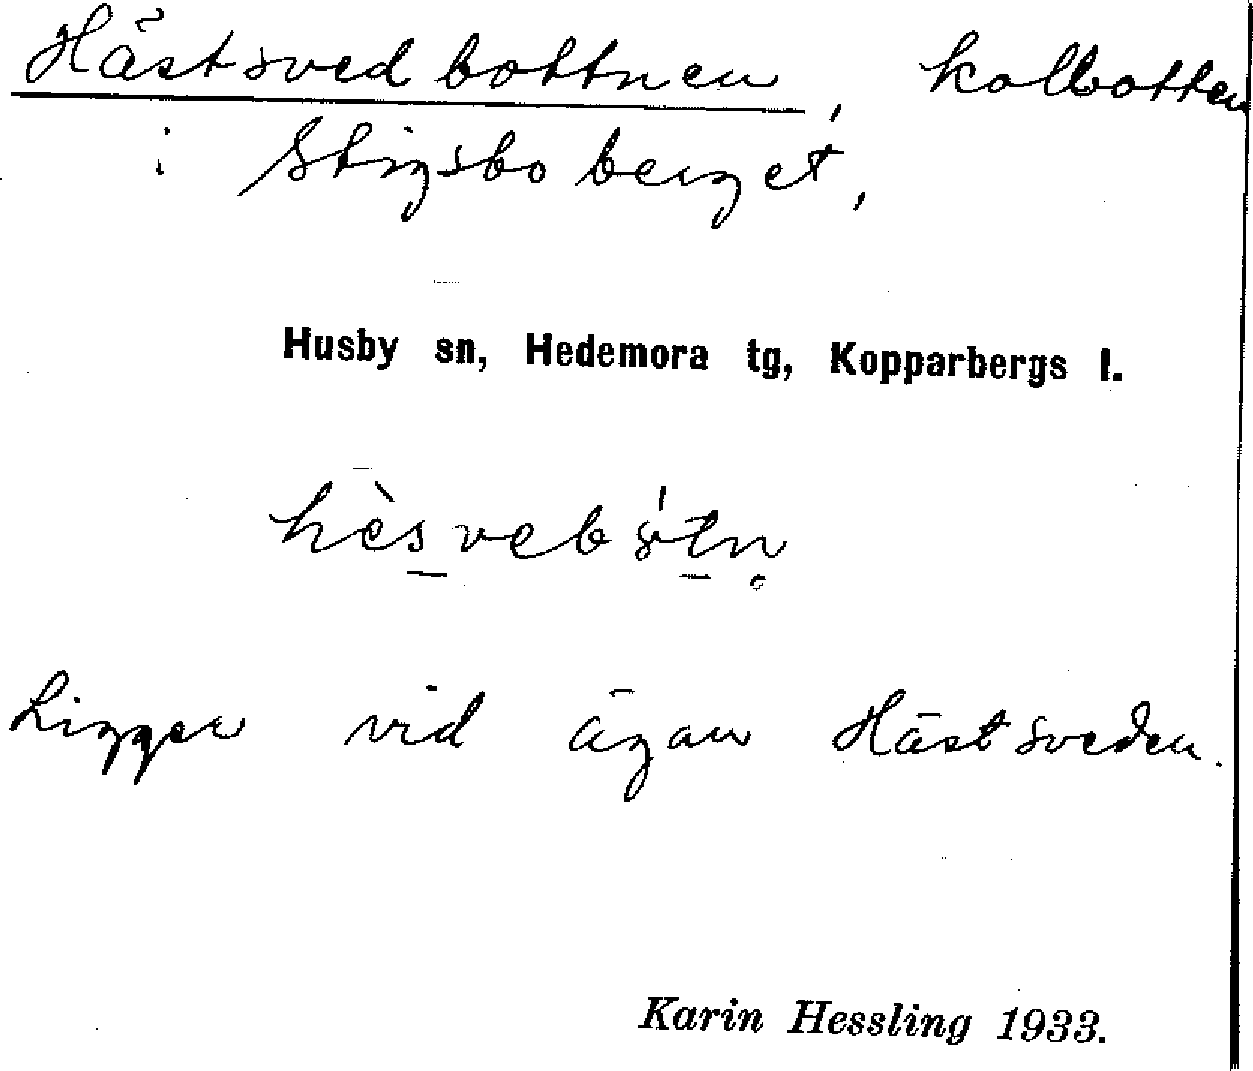 Hästsvedbottnen, kolbotten
i Stigsboberget,
Husby sn, Hedemora tg, Kopparbergs l.
Ligger vid ägan Hästsveden.
Karin Hessling 1933.